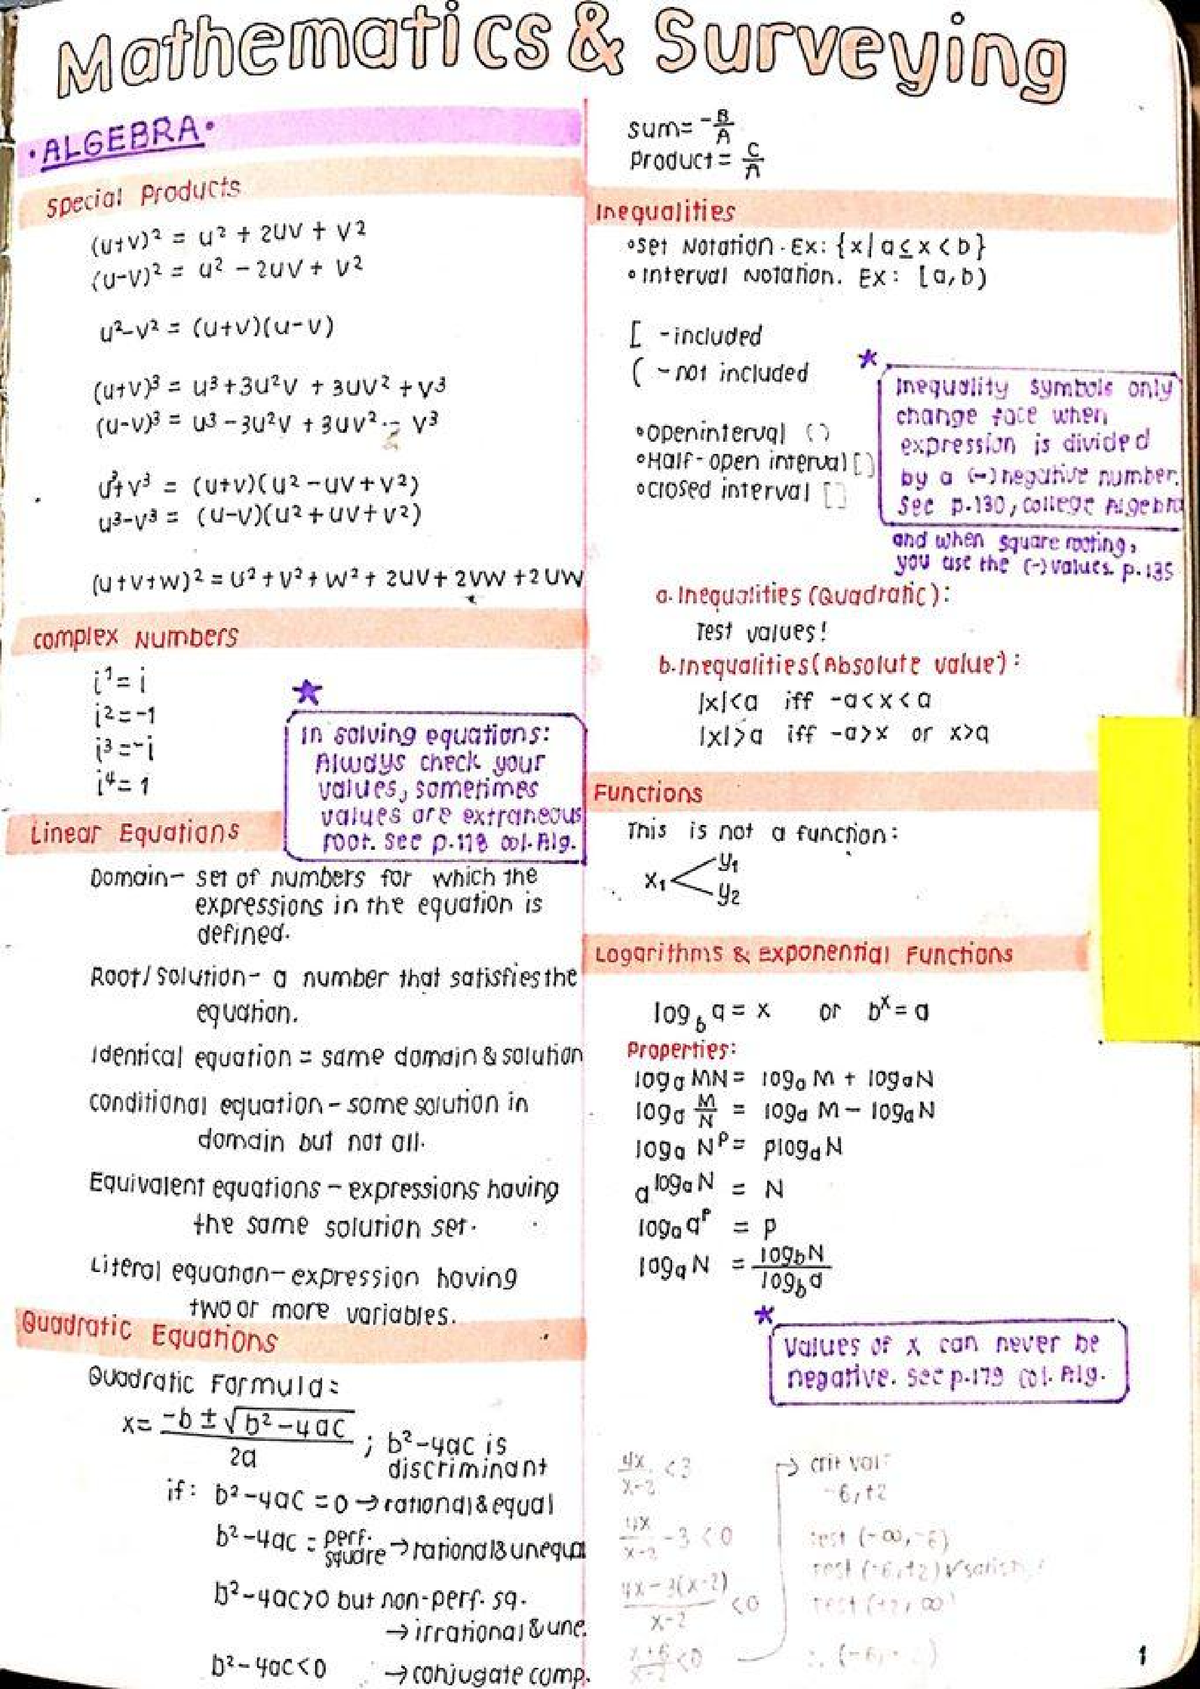 Mathematics & Surveying
• ALGEBRA •
Special Products
(u+v)² = u² + 2uv + v²
(u-v)² = u² - 2uv + v²
u²-v² = (u+v)(u-v)
(u+v)³ = u³+3u²v + 3uv² + v³
(u-v)³ = u³-3u²v + 3uv² - v³
u³+v³ = (u+v)(u²-uv+v²)
u³-v³ = (u-v)(u²+uv+v²)
(u+v+w)² = u²+v²+w²+2uv+2vw+2uw
Complex Numbers
i¹ = i
i² = -1
i³ = -i
i⁴ = 1
In solving equations:
Always check your
values, sometimes
values are extraneous
root. See p.178 Col. Alg.
Linear Equations
Domain- set of numbers for which the
expressions in the equation is
defined.
Root/Solution- a number that satisfies the
equation.
Identical equation = same domain & solution
conditional equation - some solution in
domain but not all.
Equivalent equations - expressions having
the same solution set.
Literal equation- expression having
two or more variables.
Quadratic Equations
Quadratic Formula:
x = -b ± √b²-4ac / 2a ; b²-4ac is
discriminant
if: b²-4ac = 0 → rational & equal
b²-4ac = perf. square → rational & unequal
b²-4ac > 0 but non-perf. sq.
→ irrational & une.
b²-4ac < 0 → conjugate comp.
sum = -B/A
Product = C/A
Inequalities
• Set Notation. Ex: {x|a≤x<b}
• Interval Notation. Ex: [a,b)
[ - included
( - not included
• Open interval ( )
• Half-open interval [ )
• closed interval [ ]
Inequality symbols only
change face when
expression is divided
by a (-) negative number.
See p.130, College Algebra
and when square rooting,
you use the (-) values. p.135
a. Inequalities (Quadratic):
Test values!
b. Inequalities (Absolute value):
|x|<a iff -a<x<a
|x|>a iff -a>x or x>a
Functions
This is not a function:
x₁ < y₁
y₂
Logarithms & Exponential Functions
log_b a = x or bˣ = a
Properties:
log_a MN = log_a M + log_a N
log_a M/N = log_a M - log_a N
log_a Nᵖ = p log_a N
a^log_a N = N
log_a aᵖ = p
log_a N = log_b N / log_b a
Values of x can never be
negative. See p.179 Col. Alg.
4x/x-2 < 3
4x/x-2 - 3 < 0
4x-3(x-2)/x-2 < 0
x+6/x-2 < 0
→ crit val:
-6, +2
test (-∞, -6)
test (-6, +2) ✓
test (+2, ∞)
1